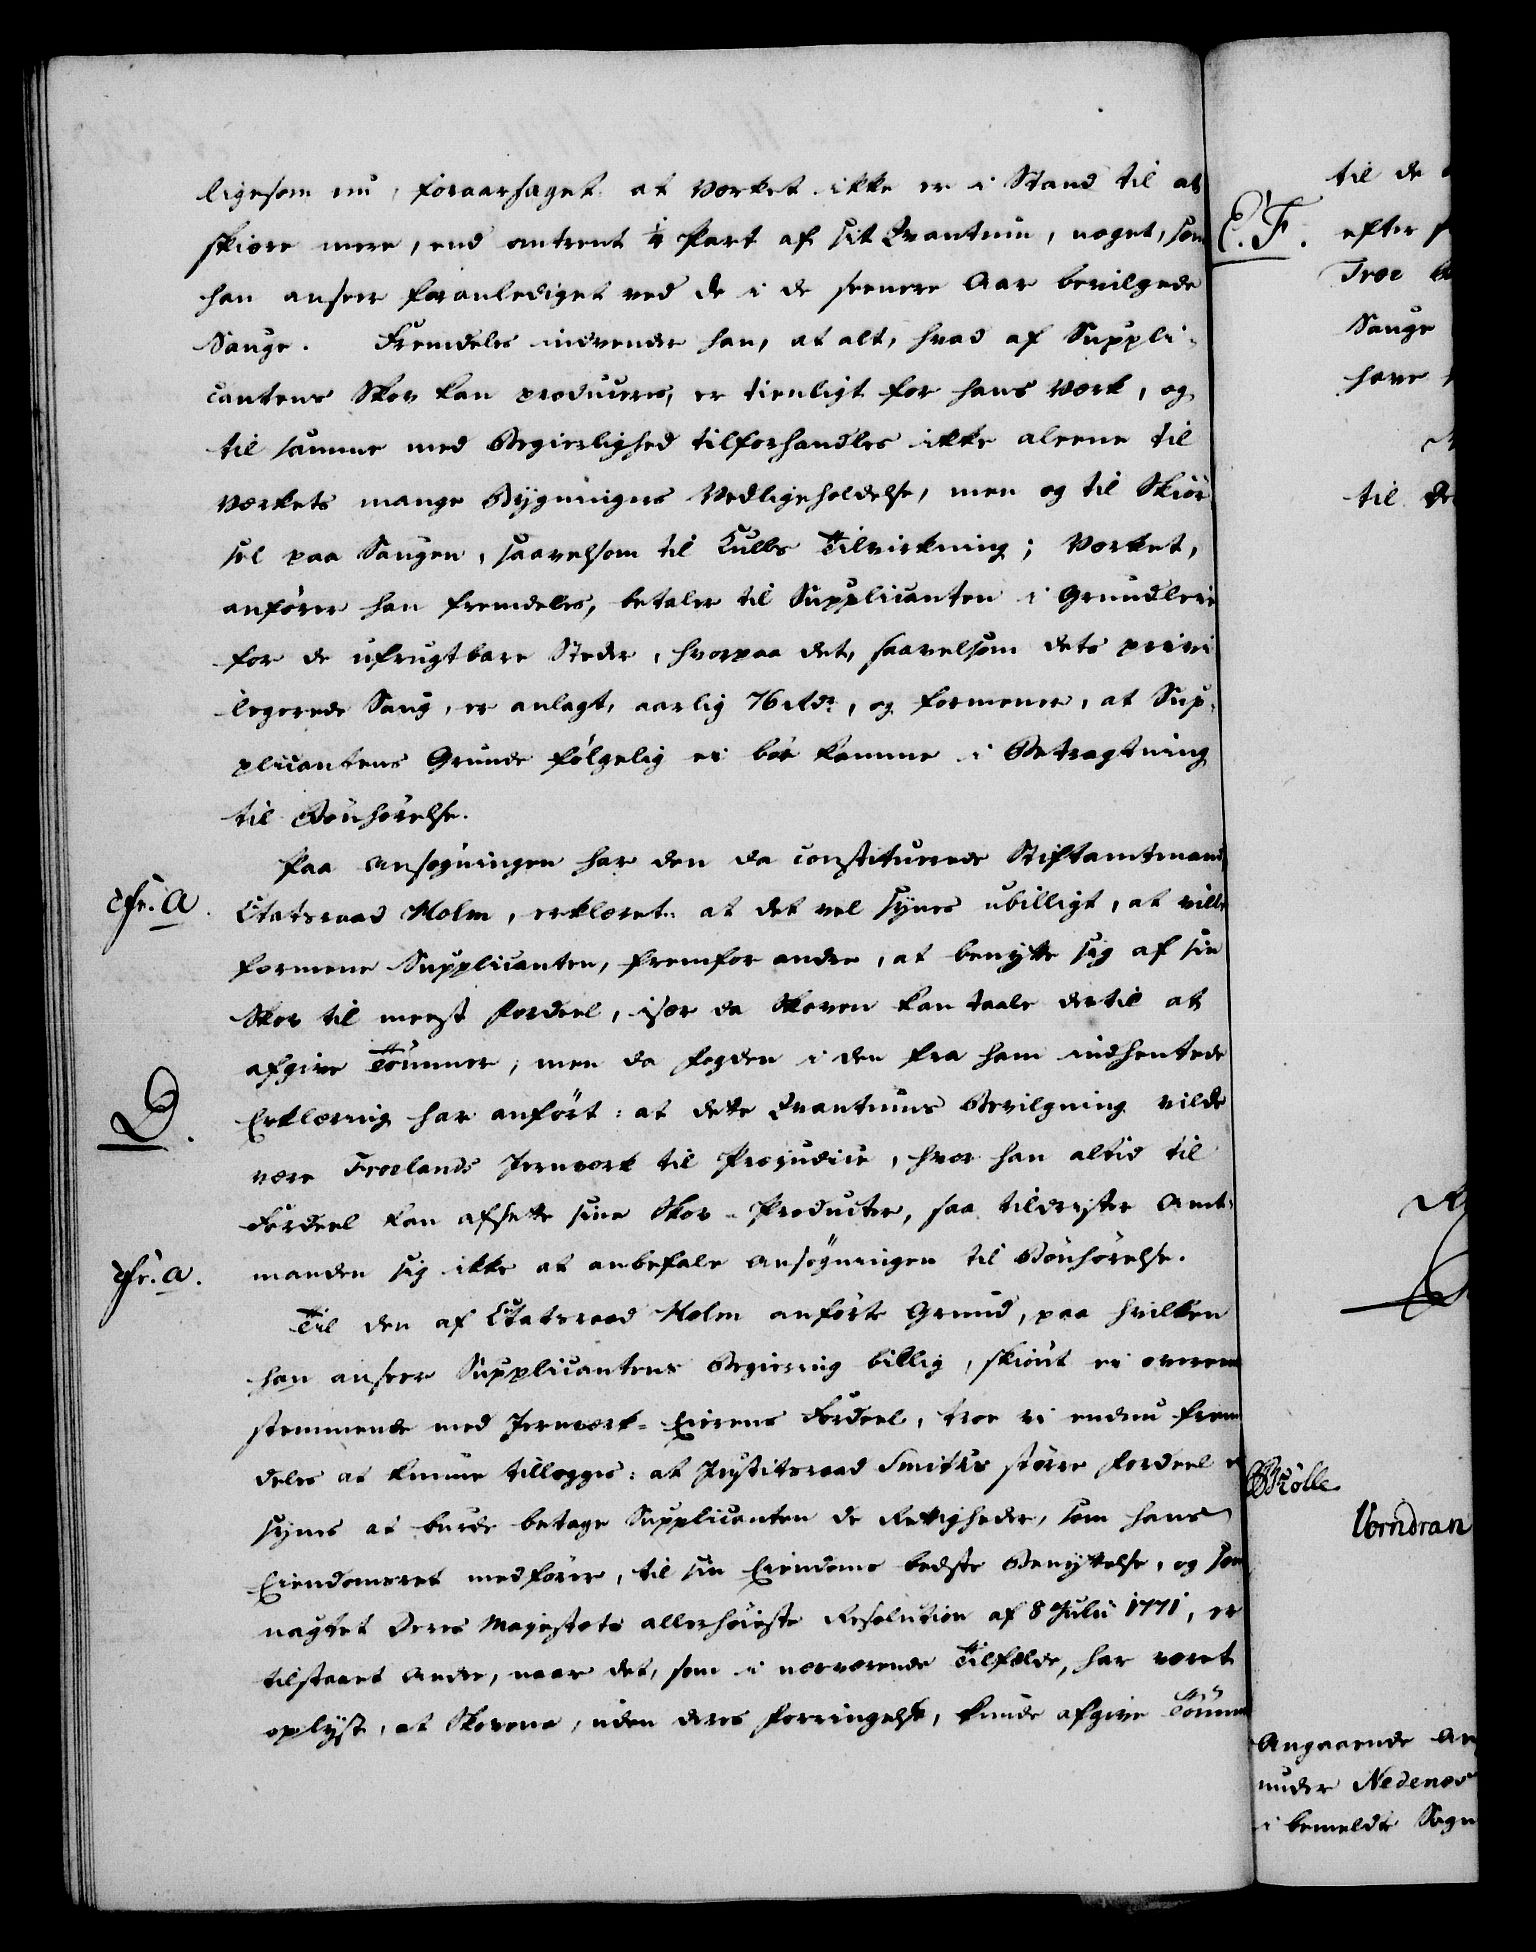 ligesom nu, foraarsaget at Værket ikke er i Stand til at
skiære mere, end omtrent 1/4 Part af sit Qvantum, noget, som
han anseer foranlediget ved de i de seenere Aar bevilgede
Sauge. Fremdeles indvender han, at alt, hvad af Suppli-
cantens Skov kan produceres, er tienligt for hans Værk, og
til samme med Begierlighed tilforhandles ikke aleene til
Værkets mange Bygningers Vedligeholdelse, men og til Skiør
sel paa Saugen, saavelsom til Kulls Tilvirkning; Værket,
anfører han fremdeles, betaler til Supplicanten i Grundleie
for de ufrugtbare Steder, hvorpaa det, saavelsom dets privi
legerede Saug, er anlagt, aarlig 76 rdr, og formener, at Sup-
plicantens Grunde følgelig ei bør komme i Betragtning
til Bønhørelse.
Paa Ansøgningen har den da constituerede Stiftamtmand,
cfr. A.
Etatsraad Holm, erklæret: at det vel synes ubilligt, at ville
formene Supplicanten, fremfor andre, at benytte sig af sin
Skov til meest Fordeel, især da Skoven kan taale dertil at
afgive Tømmer; men da Fogden i den fra ham indhentede
D.
Erklæring har anført: at dette Qvantums Bevilgning vilde
være Froelands Jernværk til Præjudice, hvor han altid til
Fordeel kan afsætte sine Skov-Producter, saa tildrister Amt-
cfr. a.
manden sig ikke at anbefale Ansøgningen til Bønhørelse.
Til den af Etatsraad Holm anførte Grund, paa hvilken
han anseer Supplicantens Begiering billig, skiønt ei overeens
stemmende med Jernværk-Eierens Fordeel, troe vi endnu frem
deles at kunne tillægges: at Justitsraad Smiths større Fordeel ei
synes at burde betage Supplicanten de Rettigheder, som hans
Eiendomsret medfører, til sin Eiendoms bedste Benyttelse, og som
uagtet Deres Majestæts allerhøieste Resolution af 8 Julii 1771, er
tilstaaet andre, naar det, som i nærværende Tilfælde, har været
oplyst, at Skovene, uden deres Forringelse, kunde afgive Tømmer
til de
E. F.
efter
Troe
Sauge
have
til
Mölle
Wendran
Angaaende
under Nedenes
i bemeldte Sogn